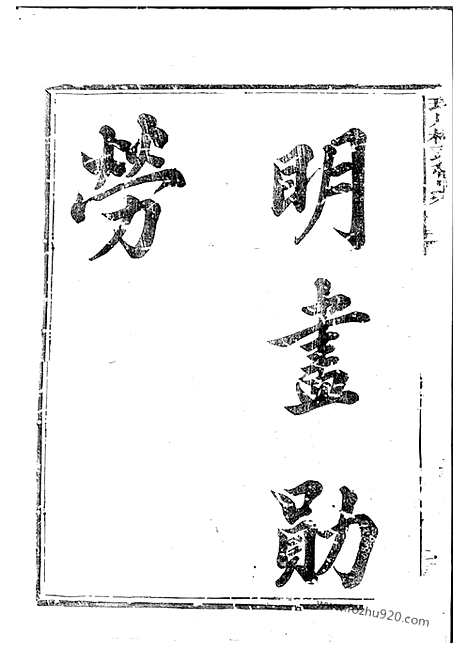 明盡勛
勞
www.rozhu920.com